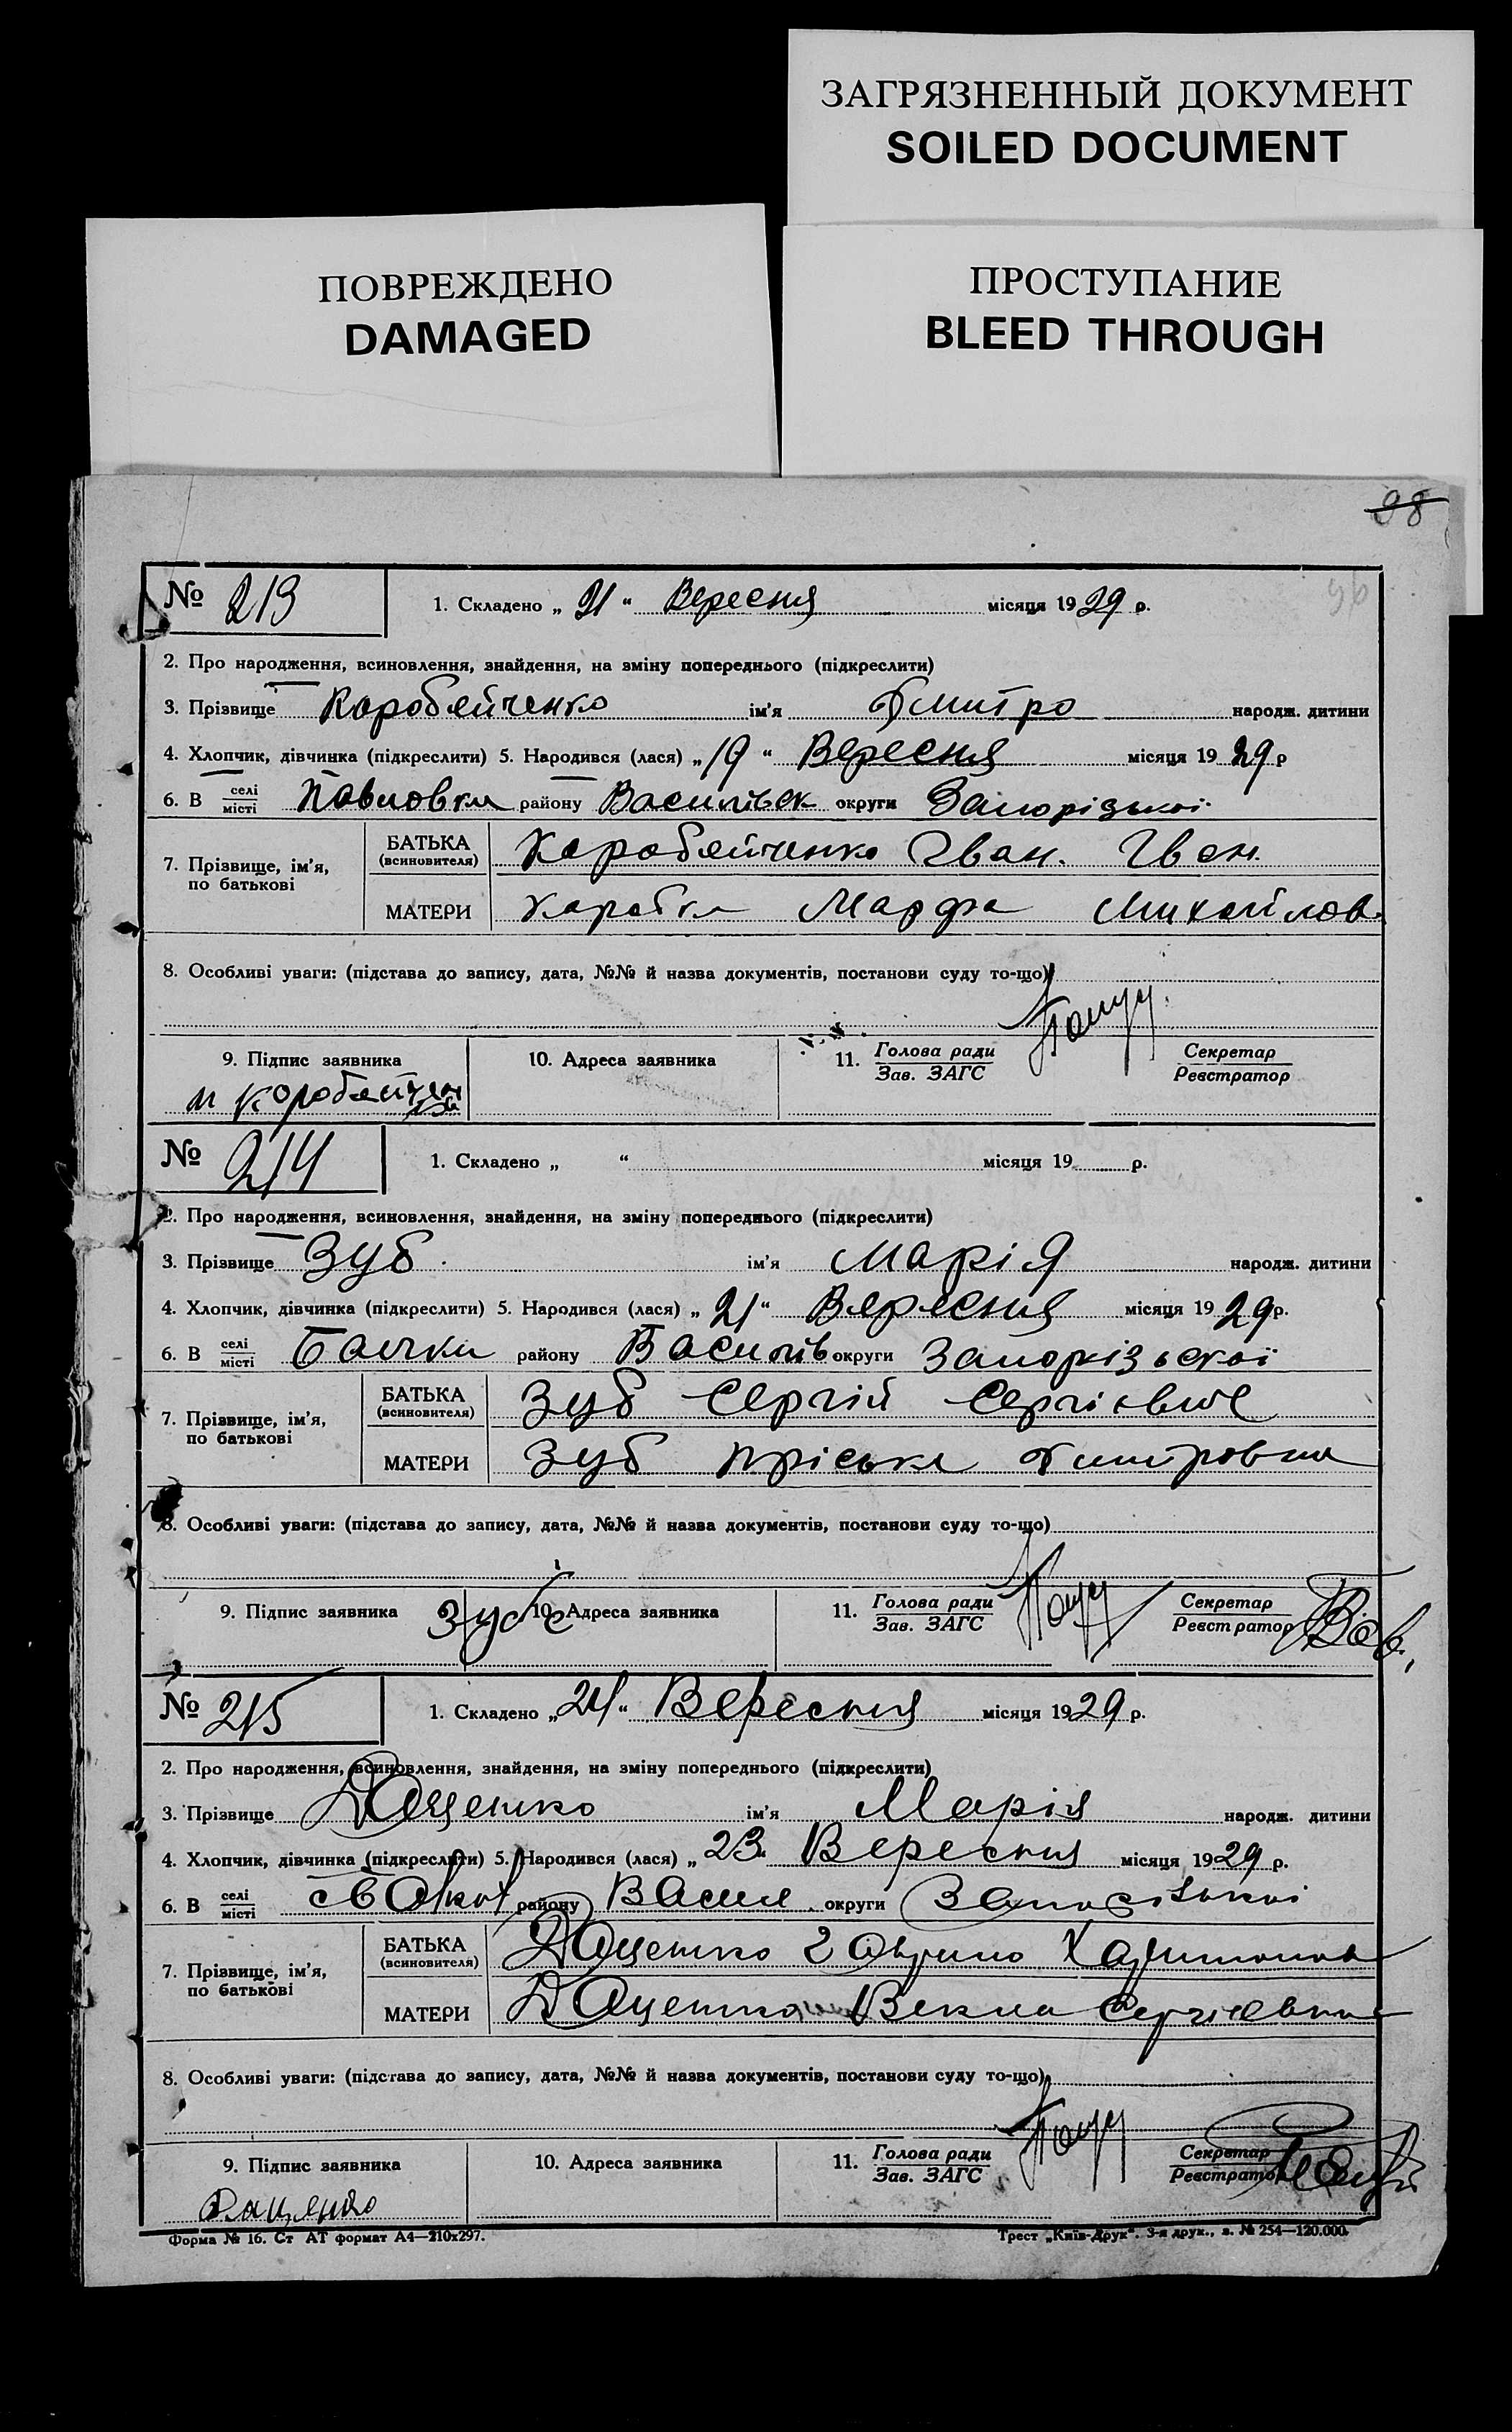 ЗАГРЯЗНЕННЫЙ ДОКУМЕНТ
SOILED DOCUMENT
ПОВРЕЖДЕНО
DAMAGED
ПРОСТУПАНИЕ
BLEED THROUGH
98
96
№ 213 1. Складено „ 21 “ Вересня місяця 1929 р.
2. Про народження, всиновлення, знайдення, на зміну попереднього (підкреслити)
3. Прізвище Коробейченко ім'я Дмитро народж. дитини
4. Хлопчик, дівчинка (підкреслити) 5. Народився (лася) „ 19 “ Вересня місяця 1929 р
6. В селі/місті Павловки району Василівск округи Запорізькоі
7. Прізвище, ім'я, по батькові
БАТЬКА (всиновителя) Коробейченко Іван. Іван.
МАТЕРИ Коробка Марфа Михайлов.
8. Особливі уваги: (підстава до запису, дата, №№ й назва документів, постанови суду то-що)
9. Підпис заявника 10. Адреса заявника 11. Голова ради/Зав. ЗАГС Секретар/Реєстратор
№ 214 1. Складено „ “ місяця 19 р.
2. Про народження, всиновлення, знайдення, на зміну попереднього (підкреслити)
3. Прізвище Зуб ім'я Марія народж. дитини
4. Хлопчик, дівчинка (підкреслити) 5. Народився (лася) „ 21 “ Вересня місяця 1929 р.
6. В селі/місті Балчки району Василів округи Запорізьскої
7. Прізвище, ім'я, по батькові
БАТЬКА (всиновителя) Зуб Сергій Сергієвич
МАТЕРИ Зуб Пріська Дмитровна
8. Особливі уваги: (підстава до запису, дата, №№ й назва документів, постанови суду то-що)
9. Підпис заявника Зуб С 10. Адреса заявника 11. Голова ради/Зав. ЗАГС Секретар/Реєстратор
№ 215 1. Складено „ 24 “ Вересня місяця 1929 р.
2. Про народження, всиновлення, знайдення, на зміну попереднього (підкреслити)
3. Прізвище Даценко ім'я Марія народж. дитини
4. Хлопчик, дівчинка (підкреслити) 5. Народився (лася) „ 23 “ Вересня місяця 1929 р.
6. В селі/місті району Васил округи
7. Прізвище, ім'я, по батькові
БАТЬКА (всиновителя) Даценко Гаврило Харитонов
МАТЕРИ Даценко Векла Сергієвна
8. Особливі уваги: (підстава до запису, дата, №№ й назва документів, постанови суду то-що)
9. Підпис заявника 10. Адреса заявника 11. Голова ради/Зав. ЗАГС Секретар/Реєстратор
Даценко
Форма № 16. Ст АТ формат А4—210х297. Трест „Київ-Друк“. 3-я друк., з. № 254—120.000.